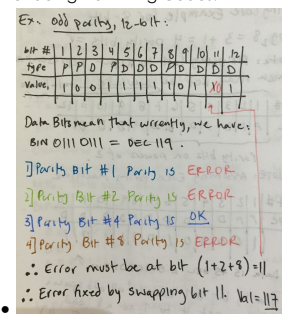 Ex. odd parity, 12-bit:
bit # | 1 | 2 | 3 | 4 | 5 | 6 | 7 | 8 | 9 | 10 | 11 | 12
type P P D P D D D P D D D D
Value, 1 0 0 1 1 1 1 1 0 1 1 0 1
Data Bits mean that currently, we have:
BIN 0111 0111 = DEC 119.
1] Parity Bit #1 Parity is ERROR
2] Parity Bit #2 Parity is ERROR
3] Parity Bit #4 Parity is OK
4] Parity Bit #8 Parity is ERROR
∴ Error must be at bit (1+2+8)=11
∴ Error fixed by swapping bit 11. Val=117